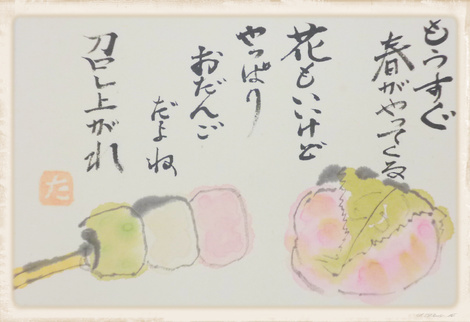 もうすぐ
春がやってくる
花もいいけど
やっぱり
おだんご
だよね
召し上がれ
た